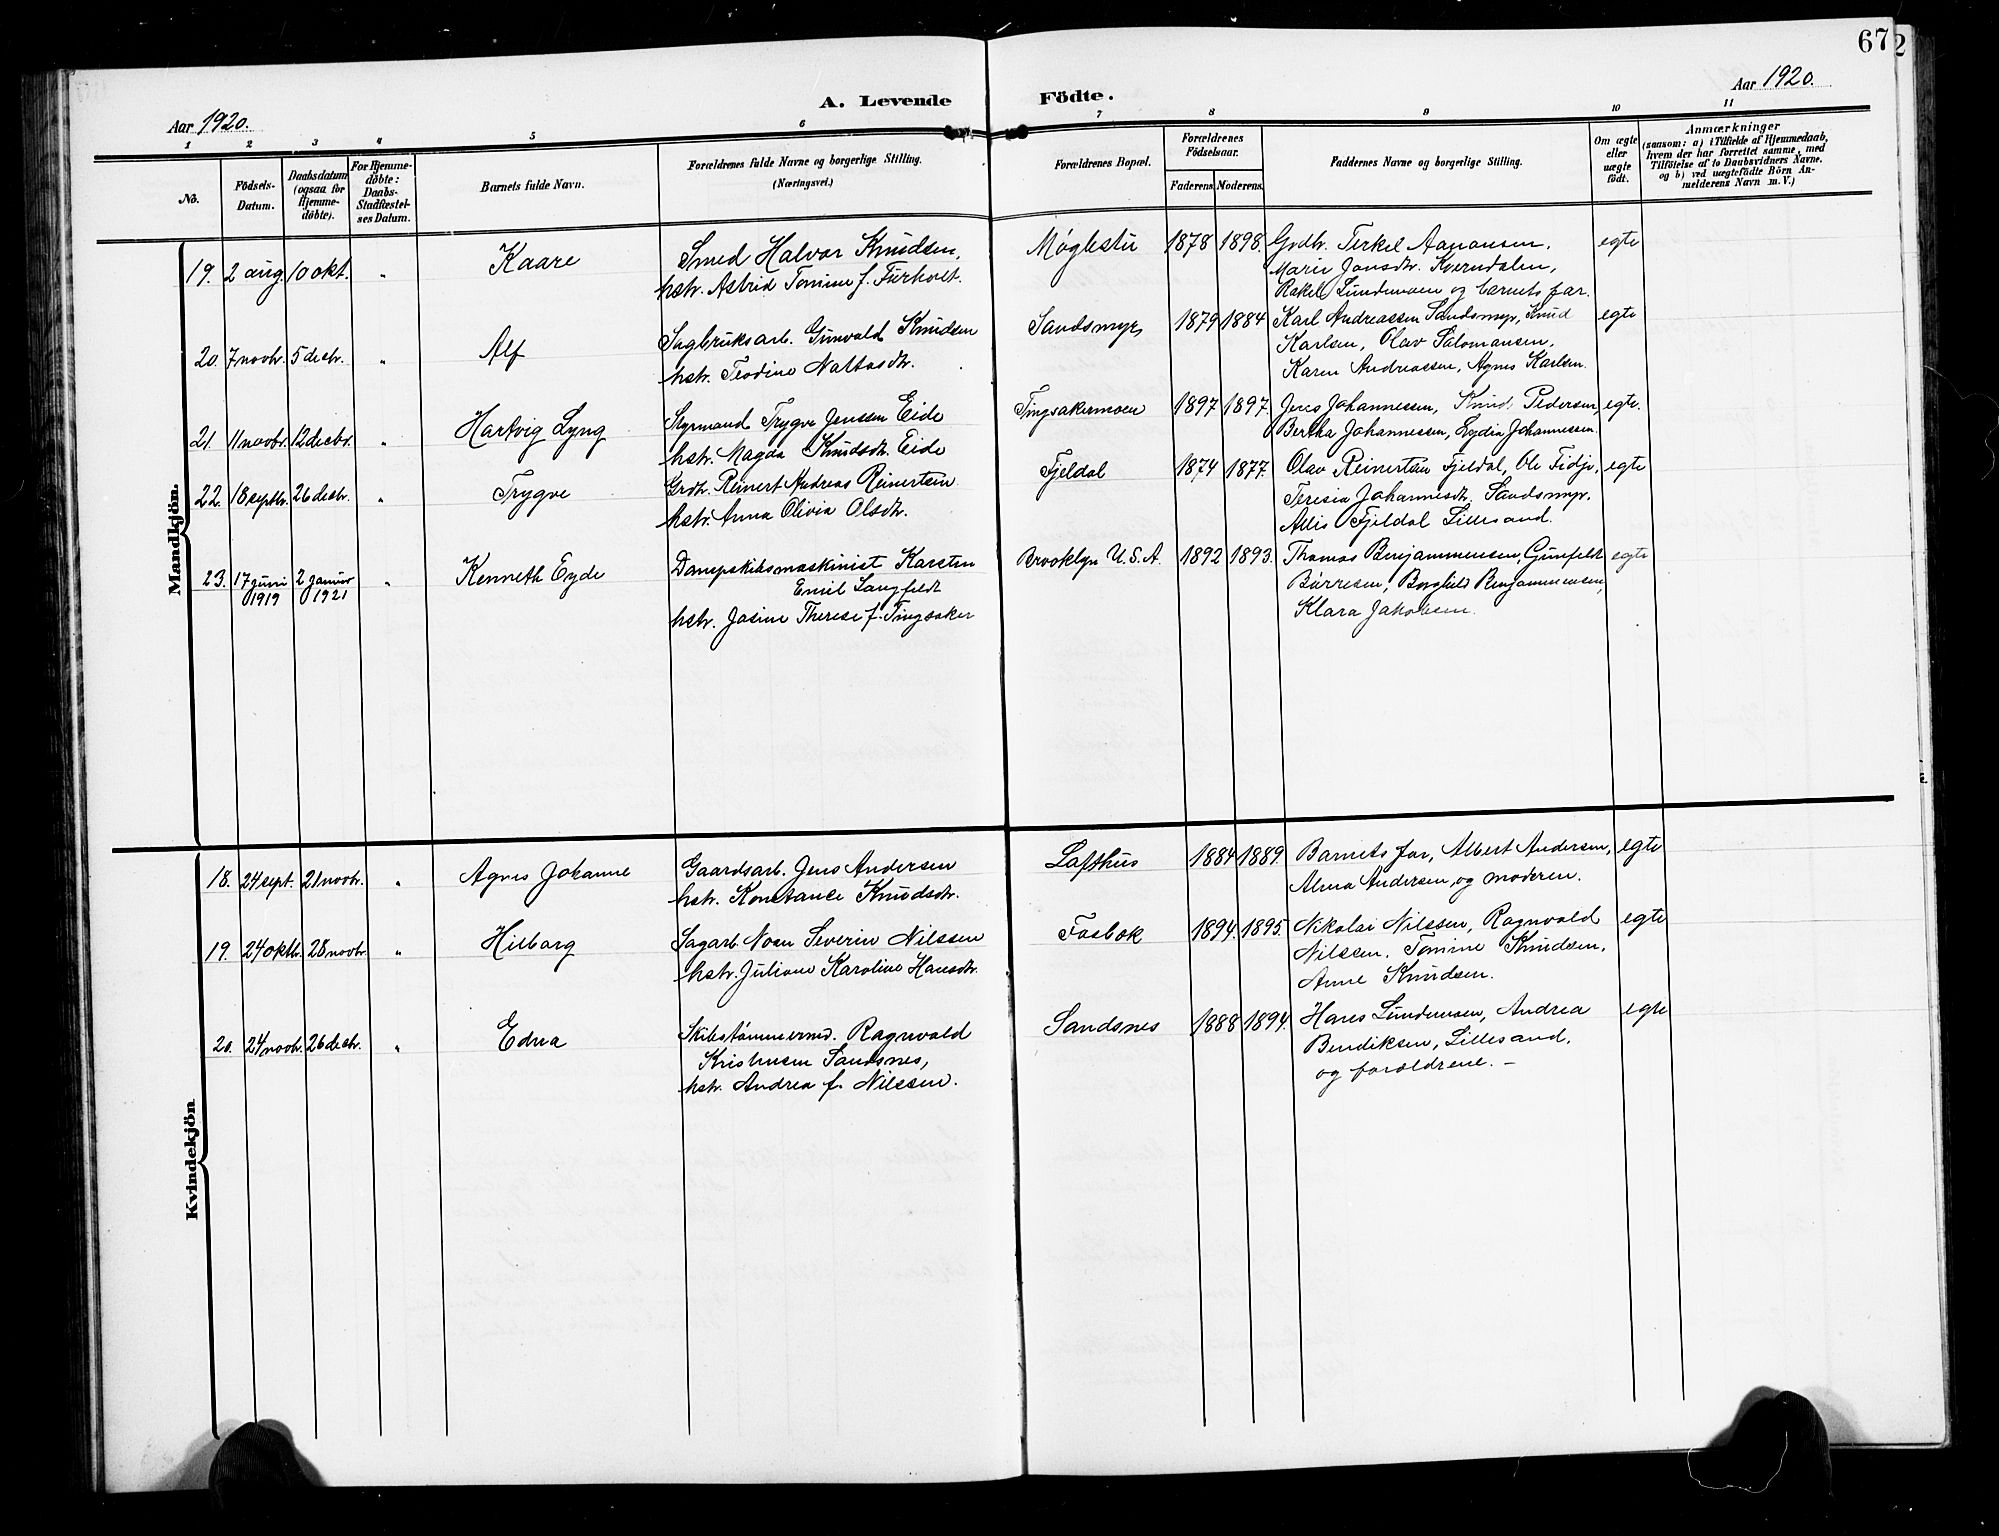 67
2
Aar 1920.
A. Levende Födte.
Aar 1920.
1 2 3 4 5 6 7 8 9 10 11
No.
Födsels-
Datum.
Daabsdatum
(ogsaa for
Hjemme-
döbte).
For Hjemme-
döbte:
Daabs-
Stadfæstel-
ses Datum.
Barnets fulde Navn.
Forældrenes fulde Navne og borgerlige Stilling.
(Næringsvei.)
Forældrenes Bopæl.
Forældrenes
Födselsaar.
Faderens. Moderens.
Faddernes Navne og borgerlige Stilling.
Om ægte
eller
uægte
födt.
Anmærkninger
(saasom: a) i Tilfælde af Hjemmedaab,
hvem der har forrettet samme, med
Tilföielse af to Daabsvidners Navne.
og b) ved uægtefödte Börn An-
melderens Navn m. V.)
Mandkjön.
19. 2 aug. 10 okt. " Kaare
Smed Halvor Knudsen,
hstr. Astrid Tomine f. Furholt.
Møglestu 1878 1898.
Grdbr. Terkel Aanonsen,
Marie Jonsdtr. Kverndalen,
Rakel Lundemoen og barnets far.
egte
20. 7 novbr. 5 decbr. " Alf
Sagbruksarb. Gunvald Knudsen
hstr. Teodine Nattasdtr.
Sandsmyr 1879 1884
Karl Andreassen Sandsmyr, Knud
Karlsen, Olav Salomansen,
Karen Andreassen, Agnes Karlsen.
egte
21. 11 novbr. 12 decbr. " Hartvig Lyng
Styrmand Trygve Jenssen Eide
hstr. Magda Knudsdtr. Eide
Tingsakermoen 1897 1897.
Jens Johannessen, Knud Pedersen
Bertha Johannessen, Lydia Johannessen.
egte.
22. 18 septbr. 26 decbr. " Trygve
Grdbr. Reinert Andreas Reinertsen
hstr. Anna Olivia Olsdtr.
Fjeldal 1874 1877.
Olav Reinertsen Fjeldal, Ole Fidje,
Teresia Johannesdtr. Sandsmyr,
Allis Fjeldal Lillesand.
egte
23. 17 juni 1919 2 januar 1921 " Kenneth Eyde
Dampskibsmaskinist Karsten
Emil Langfeldt
hstr. Josine Therese f. Tingsaker
Brooklyn U.S.A. 1892 1893.
Thomas Benjaminsen, Gunfeldt
Børresen, Borghild Benjaminsen,
Klara Jakobsen.
egte
Kvindekjön
18. 24 sept. 21 novbr. " Agnes Johanne
Gaardsarb. Jens Andersen
hstr. Konstance Knudsdtr.
Lofthus 1884 1889.
Barnets far, Albert Andersen,
Alma Andersen, og moderen.
egte
19. 24 oktbr. 28 novbr. " Hilborg
Sagarb. Noen Severin Nilssen
hstr. Juliane Karoline Hansdtr.
Fosbæk 1894. 1895.
Nikolai Nilssen, Ragnvald
Nilssen, Tomine Knudsen,
Anne Knudsen.
egte
20. 24 novbr. 26 decbr. " Edna
Skibstømmermd. Ragnvald
Kristensen Sandsnes,
hstr. Andrea f. Nilssen.
Sandsnes 1888 1894.
Hans Lundemoen, Andrea
Bendiksen, Lillesand,
og forældrene. -
egte